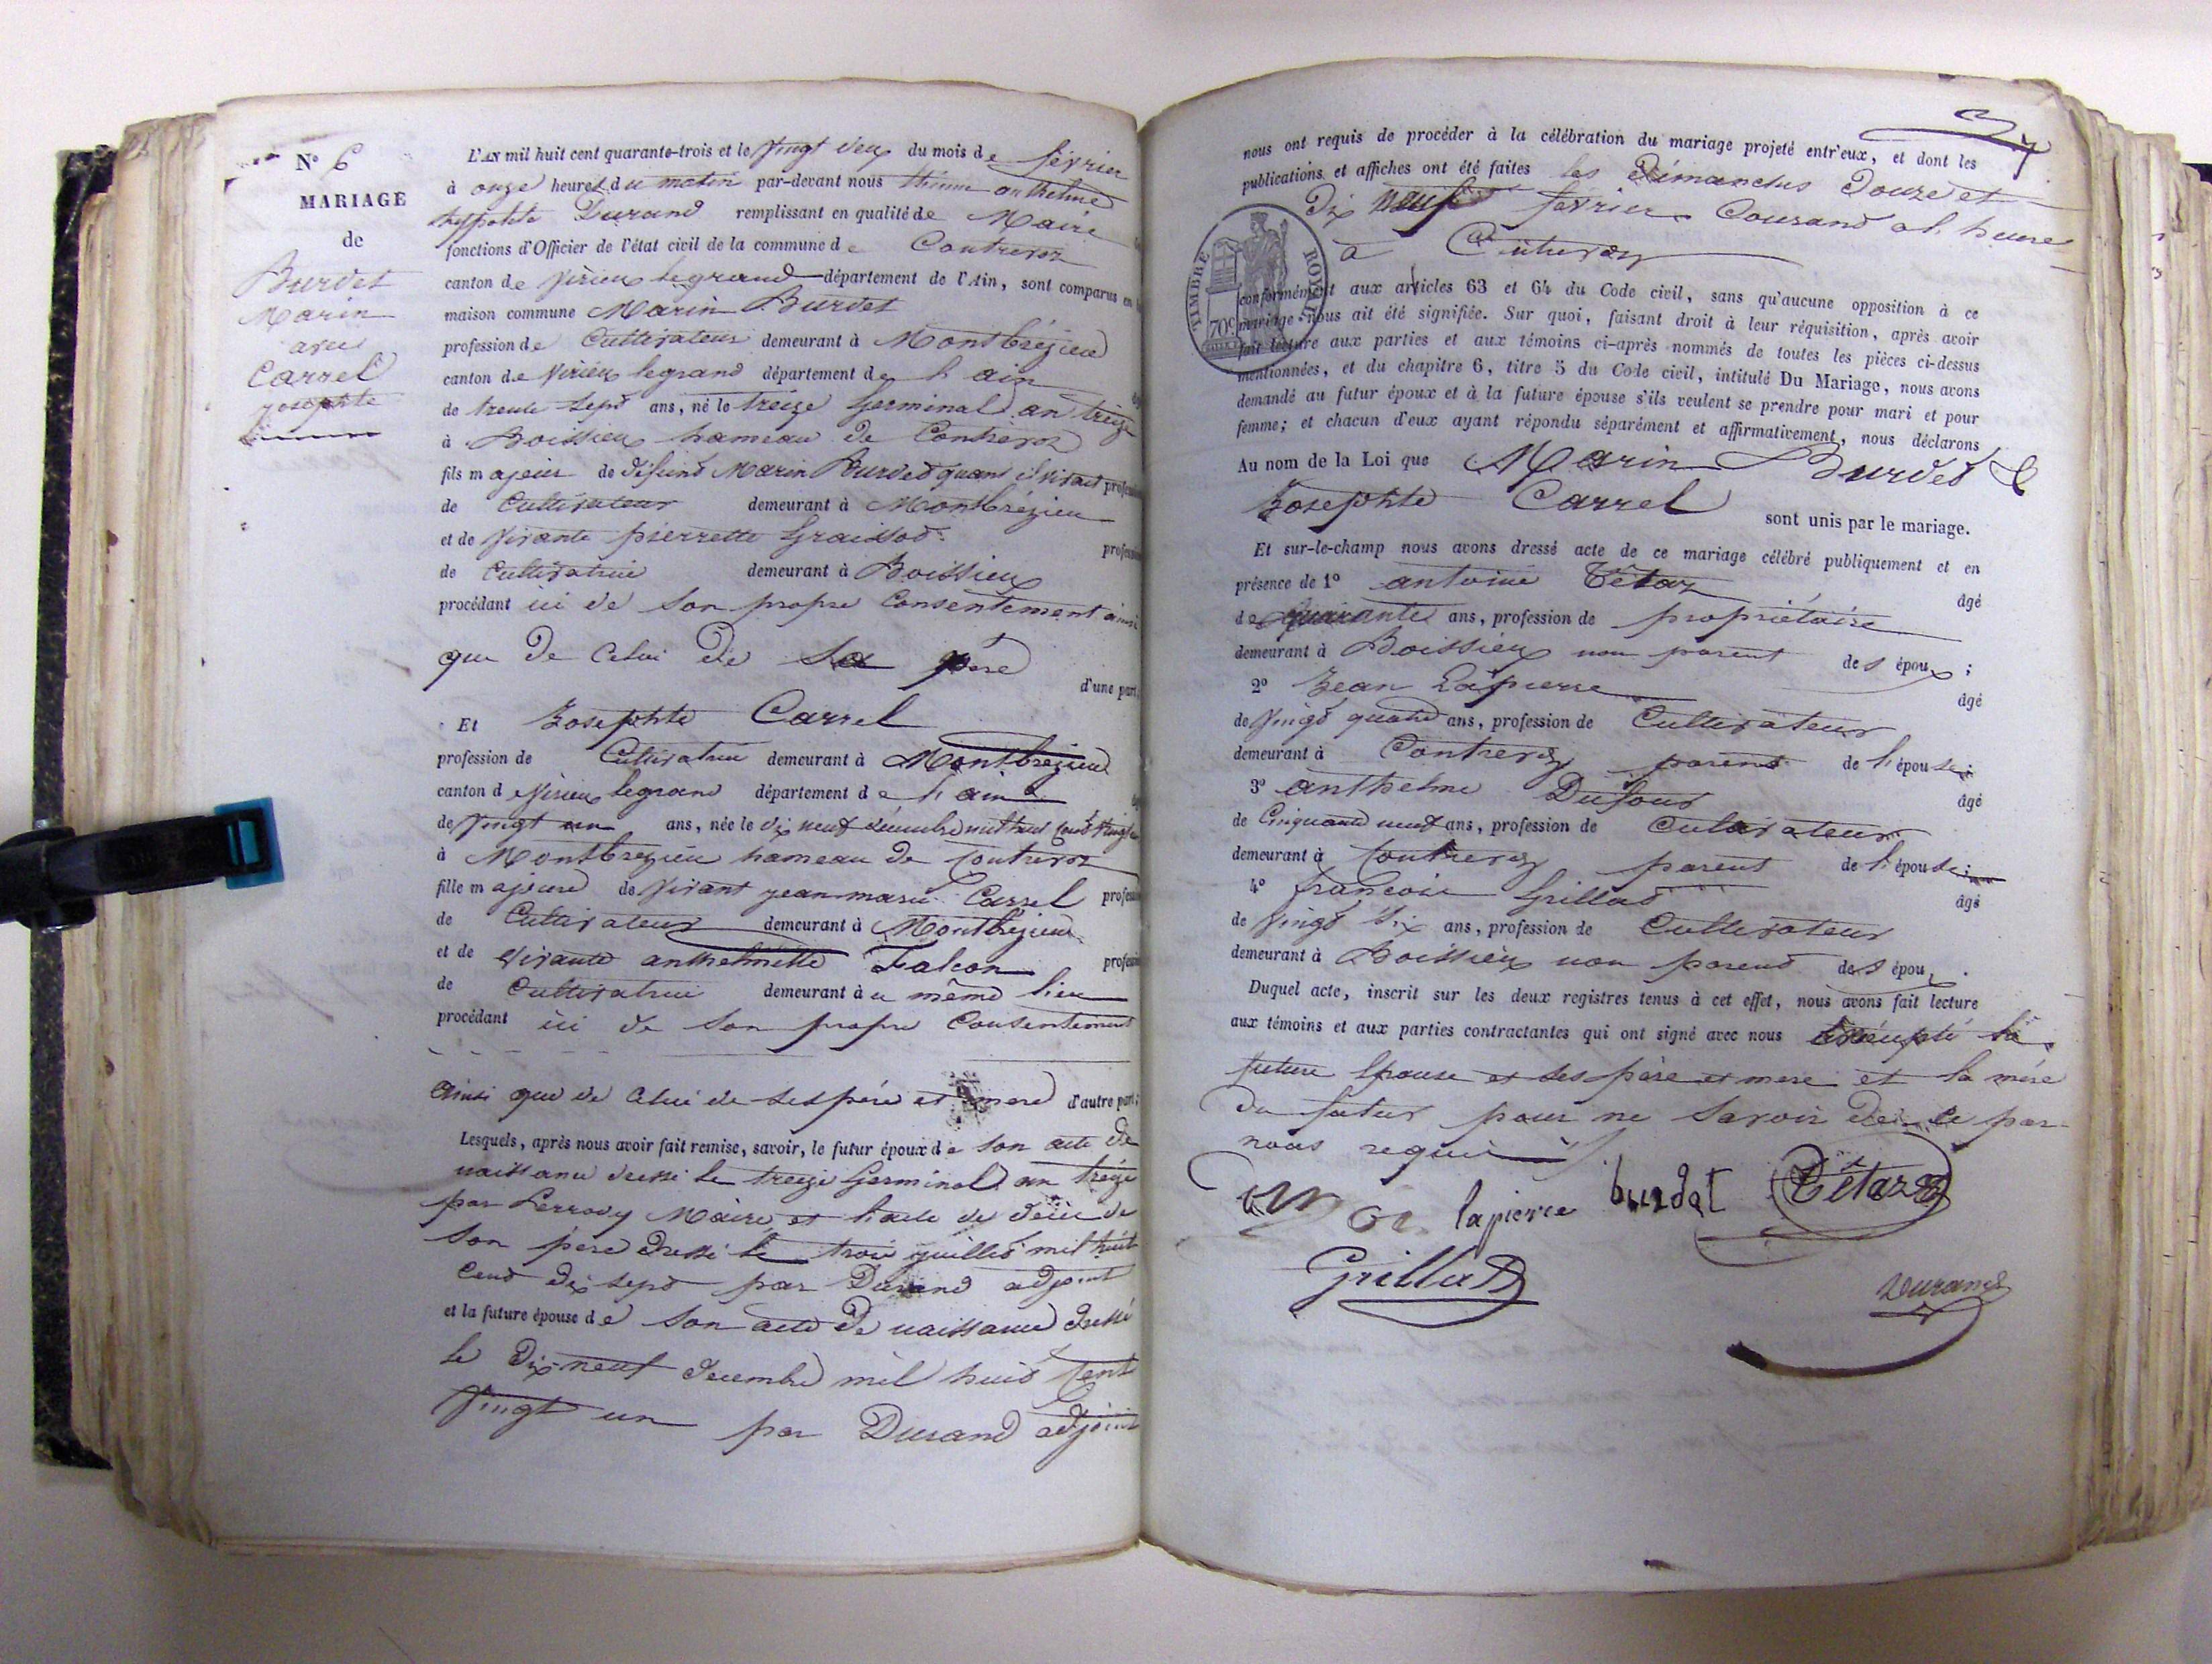 N° 6
MARIAGE
de
Burdet
Marin
avec
Carrel
Josephte
L'AN mil huit cent quarante-trois et le vingt deux du mois de février
à onze heures du matin par-devant nous anthelme
hyppolite Durand remplissant en qualité de Maire
fonctions d'Officier de l'état civil de la commune de Contrevoz
canton de virieu legrand département de l'Ain, sont comparus en
maison commune Marin Burdet
profession de Cultivateur demeurant à Montbrézieu
canton de virieu legrand département de l'ain
de trente sept ans, né le treize Germinal an treize
à Boissieu hameau de Contrevoz
fils majeur de défunt Marin Burdet quand il vivait profession
de Cultivateur demeurant à Montbrézieu
et de vivante pierrette Graissot profession
de Cultivatrice demeurant à Boissieu
procédant ici de son propre Consentement ainsi
que de Celui de sa mère
d'une part,
Et Josephte Carrel
profession de Cultivatrice demeurant à Montbrézieu
canton de virieu legrand département de l'ain
de vingt un ans, née le dix neuf décembre mil huit cent vingt un
à Montbrezieu hameau de Contrevoz
fille majeure de vivant jean marie Carrel profession
de Cultivateur demeurant à Montbrézieu
et de vivante anthelmette Falcon profession
de Cultivatrice demeurant à u même lieu
procédant ici de son propre Consentement
ainsi que de Celui de ses père et mere d'autre part;
Lesquels, après nous avoir fait remise, savoir, le futur époux de son acte de
naissance dressé le treize Germinal an treize
par Perrody Maire et l'acte de décès de
son père dressé le trois juillet mil huit
Cent dix sept par Durand adjoint
et la future épouse de son acte de naissance dressé
le dix-neuf decembre mil huit Cent
vingt un par Durand adjoint
37
nous ont requis de procéder à la célébration du mariage projeté entr'eux, et dont les
publications et affiches ont été faites les dimanches douze et
dix neuf février Courand a l'heure
à Contrevoz
TIMBRE ROYAL
70c
conformément aux articles 63 et 64 du Code civil, sans qu'aucune opposition à ce
mariage nous ait été signifiée. Sur quoi, faisant droit à leur réquisition, après avoir
fait lecture aux parties et aux témoins ci-après nommés de toutes les pièces ci-dessus
mentionnées, et du chapitre 6, titre 5 du Code civil, intitulé Du Mariage, nous avons
demandé au futur époux et à la future épouse s'ils veulent se prendre pour mari et pour
femme; et chacun d'eux ayant répondu séparément et affirmativement, nous déclarons
Au nom de la Loi que Marin Burdet &
Josephte Carrel
sont unis par le mariage.
Et sur-le-champ nous avons dressé acte de ce mariage célébré publiquement et en
présence de 1° antoine Têtaz âgé
de quarante ans, profession de propriétaire
demeurant à Boissieu non parent des époux;
2° Jean Lapierre âgé
de vingt quatre ans, profession de Cultivateur
demeurant à Contrevoz parent de l'épouse;
3° anthelme Dufour âgé
de Cinquante neuf ans, profession de Cultivateur
demeurant à Contrevoz parent de l'épouse;
4° francois Grillad âgé
de vingt six ans, profession de Cultivateur
demeurant à Boissieu non parend des époux.
Duquel acte, inscrit sur les deux registres tenus à cet effet, nous avons fait lecture
aux témoins et aux parties contractantes qui ont signé avec nous excepté la
future Epouse et ses père et mere et la mère
du futur pour ne savoir de ce par
nous requis
lapierre burdet Têtaz
Grillad
Durand